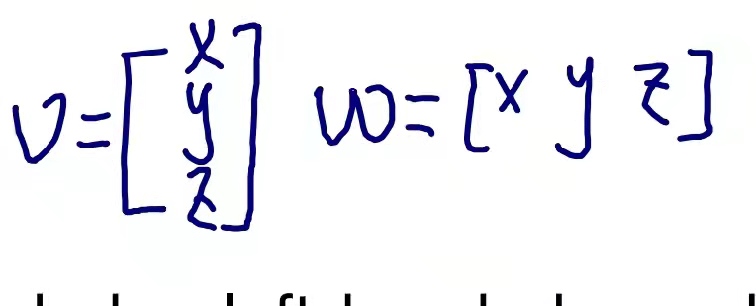 v = [x y z] w = [x y z]